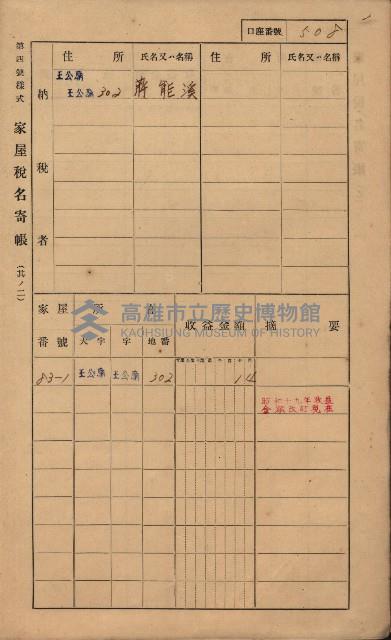 口座番號 508
第四號樣式 家屋稅名寄帳 (其ノ二)
納稅者
住所 氏名又ハ名稱 住所 氏名又ハ名稱
王公廟
王公廟 302 蔣能溪
家屋所在 收益金額 摘要
番號 大字 字 地番
83-1 王公廟 王公廟 302 14
昭和十九年收益
金額改訂現在
高雄市立歷史博物館
KAOHSIUNG MUSEUM OF HISTORY